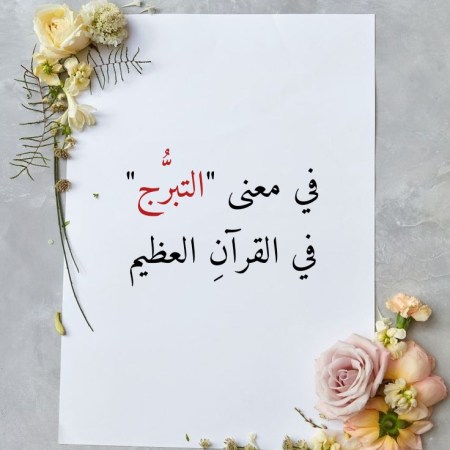 في معنى "التبرُّج"
في القرآنِ العظيم